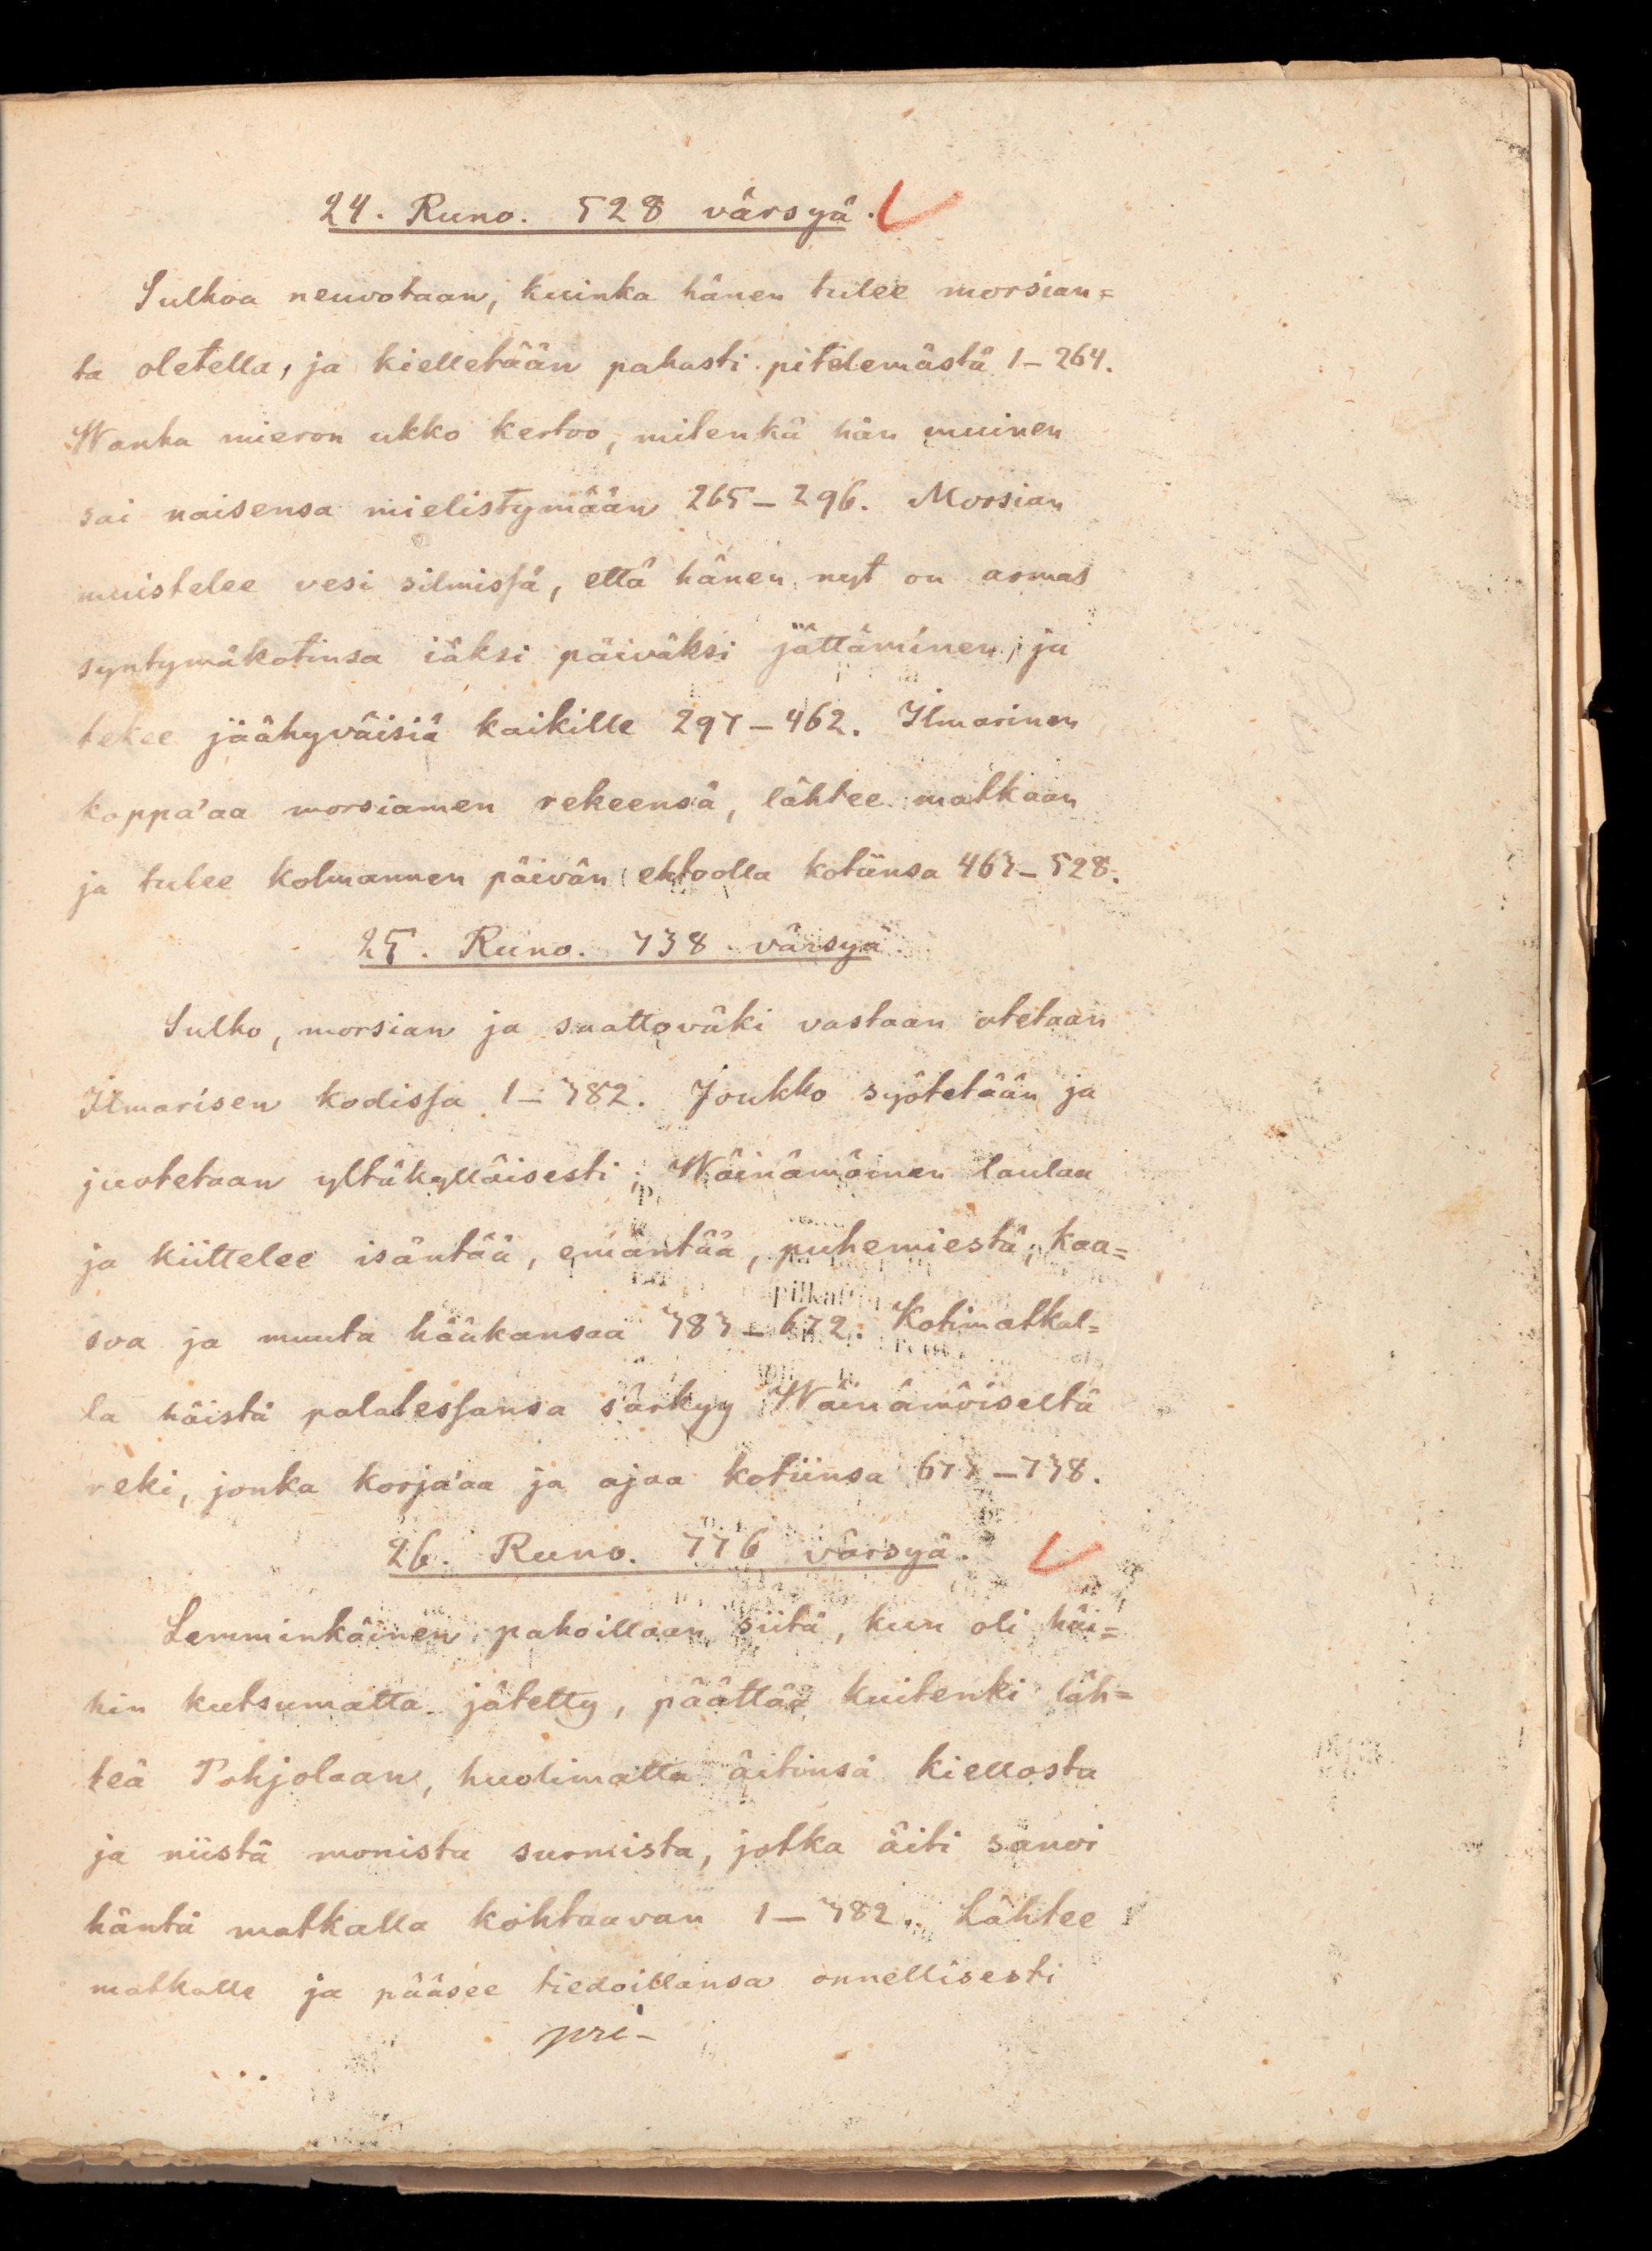 24. Runo. 528 värsyä.
Sulhoa neuvotaan, kuinka hänen tulee morsian=
ta oletella, ja kielletään pahasti pitelemästä 1–264.
Wanha mieron ukko kertoo, milenkä hän muinen
sai naisensa mielistymään 265–296. Morsian
muistelee vesi silmissä, että hänen nyt on armas
syntymäkotinsa iäksi päiväksi jättäminen, ja
tekee jäähyväisiä kaikille 297–462. Ilmarinen
koppa'aa morsiamen rekeensä, lähtee matkaan
ja tulee kolmannen päivän ehtoolla kotiinsa 463–528.
25. Runo. 738 värsyä
Sulho, morsian ja saattoväki vastaan otetaan
Ilmarisen kodissa 1–382. Joukko syötetään ja
juotetaan yltäkylläisesti; Wäinämöinen laulaa
ja kiittelee isäntää, emäntää, puhemiestä, kaa=
soa ja muuta hääkansaa 383–672. Kotimatkal=
la häistä palatessansa särkyy Wäinämöiseltä
reki, jonka korja'aa ja ajaa kotiinsa 673–738.
26. Runo. 776 värsyä.
Lemminkäinen, pahoillaan siitä, kun oli häi=
hin kutsumatta jätetty, päättää kuitenki läh=
teä Pohjolaan, huolimatta äitinsä kiellosta
ja niistä monista surmista, jotka äiti sanoi
häntä matkalla kohtaavan 1–382. Lähtee
matkalle ja pääsee tiedoillansa onnellisesti
pri-